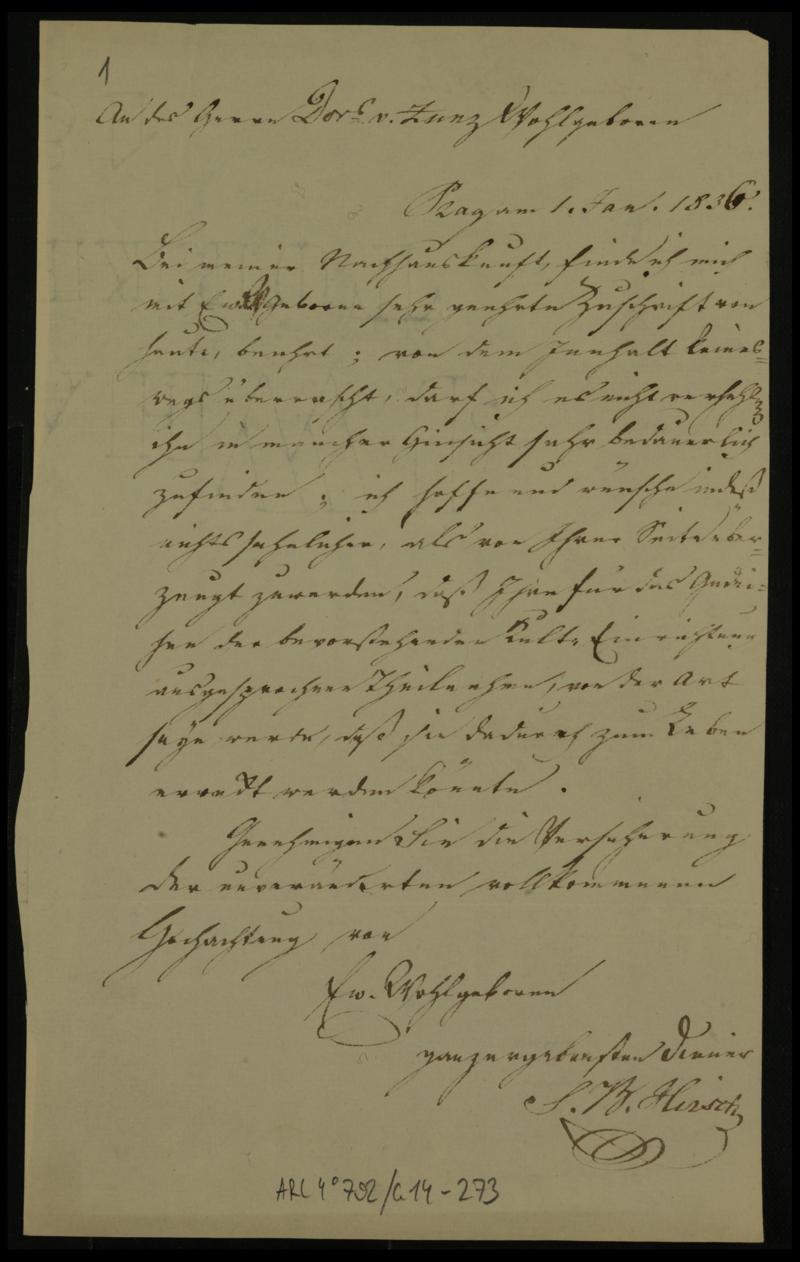 1
An des Herrn Doct. v. Zunz Wohlgeboren
Prag am 1. Jan. 1836.
Bei meiner Nachhauskunft, finde ich mich
mit Ew. Wohlgeboren sehr geehrte Zuschrift von
heute, beehrt; von dem Innhalt keines=
wegs überrascht, darf ich es nicht verhehlen
ihn in mancher Hinsicht sehr bedauerlich
zufinden; ich hoffe und wünsche indeß
nichts sehnlicher, als von Ihrer Seite über=
zeugt zuwerden, daß Ihre für das Gedei=
hen der bevorstehenden Cult. Einrichtung
ausgesprochene Theilnahme, von der Art
seyn werde, daß sie dadurch zum Leben
erweckt werden könnte.
Genehmigen Sie die Versicherung
der unveränderten vollkommenen
Hochachtung von
Ew. Wohlgeboren
ganz ergebensten Diener
S. W. Hirsch
ARC 4° 792/G14-273